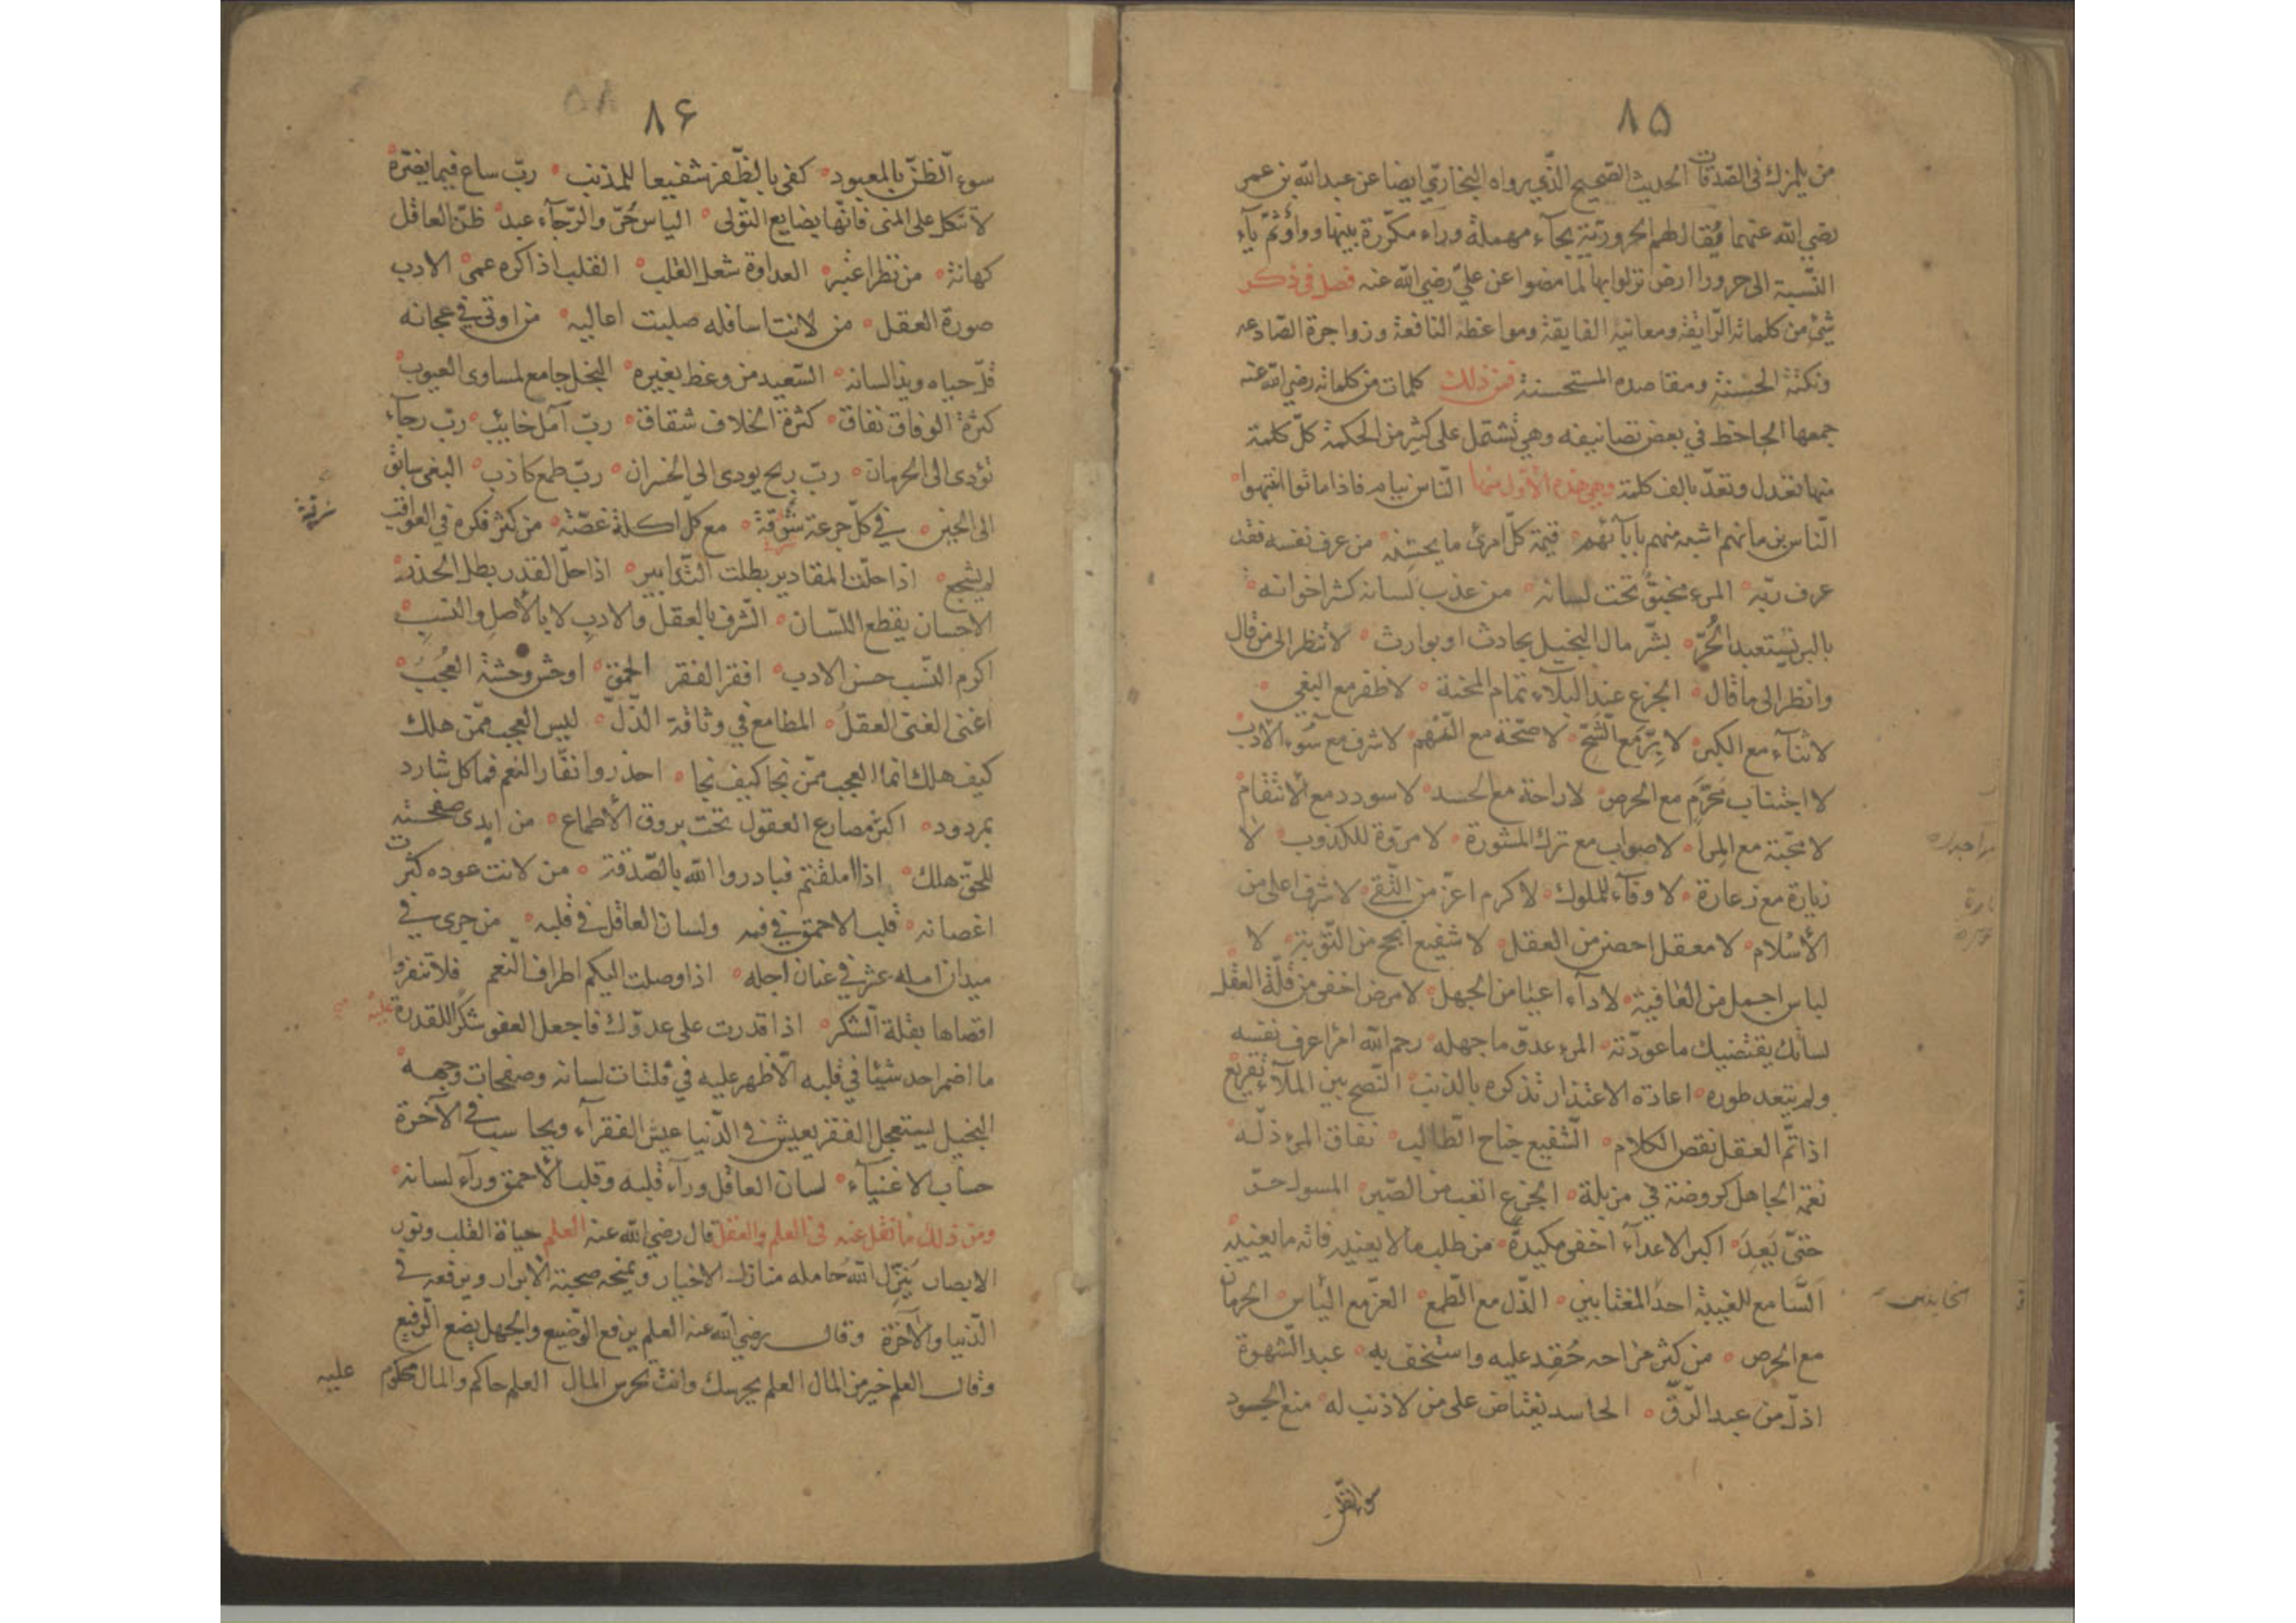 ٨٥
من يلمزك في الصدقات الحديث الصحيح الذي رواه البخاري ايضا عن عبد الله بن عمر
رضي الله عنهما فقال لهم الحرورية بحاء مهملة وراء مكررة بينهما واو ثم ياء
النسبة الى حرورا ارض نزلوا بها لما مضوا عن علي رضي الله عنه فصل في ذكر
شئ من كلماته الرايقة ومعانيه الفايقة ومواعظه النافعة وزواجرة الصادعه
ونكتة الحسنة ومقاصده المستحسنة فمن ذلك كلمات من كلماته رضي الله عنه
جمعها الجاحظ في بعض تصانيفه وهي تشتمل على كثير من الحكمة كل كلمة
منها تعدل وتعد بالف كلمة وهي هذه الاول منها الناس نيام فاذا ماتوا انتبهوا
الناس بزمانهم اشبه منهم بابآئهم قيمة كل امرئ ما يحسنه من عرف نفسه فقد
عرف ربه المرء مخبو تحت لسانه من عذب لسانه كثر اخوانه
بالبر يستعبد الحر بشر مال البخيل بحادث او بوارث لا تنظر الى من قال
وانظر الى ما قال الجزع عند البلاء تمام المحنة لا ظفر مع البغي
لا ثناء مع الكبر لا بر مع الشح لا صحة مع النهم لا شرف مع سوء الادب
لا اجتناب محرم مع الحرص لا راحة مع الحسد لا سودد مع الانتقام
لا محبة مع المرآ لا صواب مع ترك المشورة لا مروة للكذوب لا
زيارة مع زعارة لا وفآء للملوك لا كرم اعز من التقى لا شرف اعلى من
الاسلام لا معقل احصن من العقل لا شفيع انجح من التوبة لا
لباس اجمل من العافية لا دآء اعيا من الجهل لا مرض اخفى من قلة العقل
لسانك يقتضيك ما عودته المرء عدو ما جهله رحم الله امرا عرف نفسه
ولم يتعد طوره اعادة الاعتذار تذكره بالذنب النصح بين الملآء تقريع
اذا تم العقل نقص الكلام الشفيع جناح الطالب نفاق المرء ذله
نعمة الجاهل كروضة في مزبلة الجزع اتعب من الصبر المسول حر
حتى يعد اكبر الاعدآء اخفى مكيدة من طلب ما لا يعنيه فاته ما يعنيه
السامع للغيبة احد المغتابين الذل مع الطمع العز مع الياس الحرمان
مع الحرص من كثر مزاحه حقد عليه واستخف به عبد الشهوة
اذل من عبد الرق الحاسد يغتاض على من لا ذنب له منع الجود
سوء الظن
٨۶
٥٨
سوء الظن بالمعبود كفى بالظفر شفيعا للمذنب رب ساع فيما يضره
لا تتكل على المنى فانها بضايع النولى الياس حر والرجآء عبد ظن العاقل
كهانة من نظر اعتبر العداوة شغل القلب القلب اذا كره عمى الادب
صورة العقل من لانت اسافله صلبت اعاليه من اوتي في عجانه
قل حياه وبذا لسانه السعيد من وعظ بغيره البخل جامع لمساوى العيوب
كثرة الوفاق نفاق كثرة الخلاف شقاق رب آمل خائب رب رجآء
تؤدى الى الحرمان رب ربح يودى الى الخسران رب طمع كاذب البغى سابق
الى الحين في كل جرعة شرقة مع كل اكلة غصة من كثر فكره في العواقب
لم يشجع اذا حلت المقادير بطلت التدابير اذا حل القدر بطل الحذر
الاحسان يقطع اللسان الشرف بالعقل والادب لا بالاصل والنسب
اكرم النسب حسن الادب افقر الفقر الحمق اوحش وحشة العجب
اغنى الغنى العقل المطامع في وثاقة الذل ليس العجب ممن هلك
كيف هلك انما العجب ممن نجا كيف نجا احذروا نفار النعم فما كل شارد
بمردود اكثر مصارع العقول تحت بروق الاطماع من ابدى صفحته
للحق هلك اذا املقتم فبادروا الله بالصدقة من لانت عوده كثرت
اغصانه قلب الاحمق في فمه ولسان العاقل في قلبه من جرى في
ميدان امله عثر في عنان اجله اذا وصلت اليكم اطراف النعم فلا تنفروا
اقصاها بقلة الشكر اذا قدرت على عدوك فاجعل العفو شكرا للقدرة عليه
ما اضمر احد شيئا في قلبه الا ظهر عليه في فلتات لسانه وصفحات وجهه
البخيل يستعجل الفقر يعيش في الدنيا عيش الفقرآء ويحاسب في الآخرة
حساب الاغنيآء لسان العاقل ورآء قلبه وقلب الاحمق ورآء لسانه
ومن ذلك ما نقل عنه في العلم والعقل قال رضي الله عنه العلم حياة القلب ونور
الابصار ينزل الله حامله منازل الاخيار ويمنحه صحبة الابرار ويرفعه في
الدنيا والآخرة وقال رضي الله عنه العلم يرفع الوضيع والجهل يضع الرفيع
وقال العلم خير من المال العلم يحرسك وانت تحرس المال العلم حاكم والمال محكوم عليه